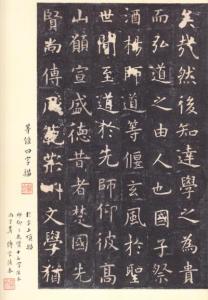 矣哉然後知達學之為貴
而弘道之由人也國子祭
酒楊師道等偃玄風於聖
世聞至道於先師仰彼高
山願宣盛德昔者楚國先
賢尚傳風範荊州文學猶
四字描